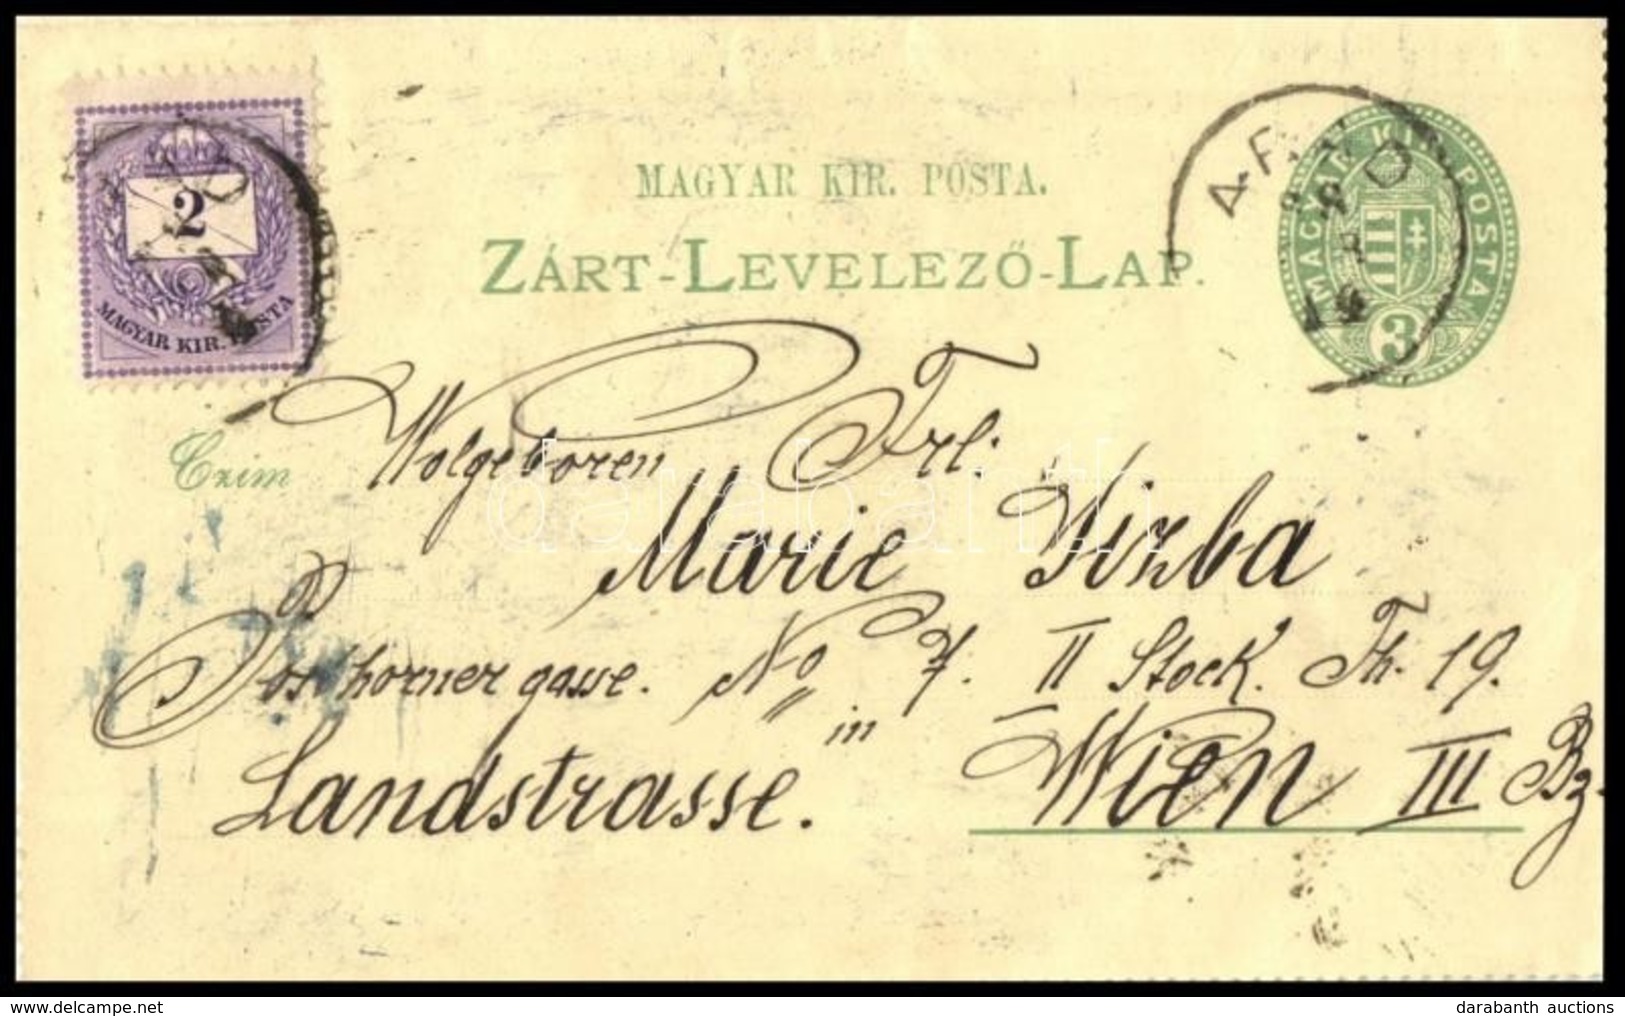 MAGYAR KIR. POSTA.
ZÁRT-LEVELEZŐ-LAP.
2
MAGYAR KIR. POSTA
MAGYAR KIR. POSTA
3
19
Czim
Wolgeboren Frl:
Marie Wizba
Posthornergasse. No 7. II Stock. Th. 19.
in
Landstrasse. Wien III Bz.
darabanth
www.oldthing.at
darabanth auctions